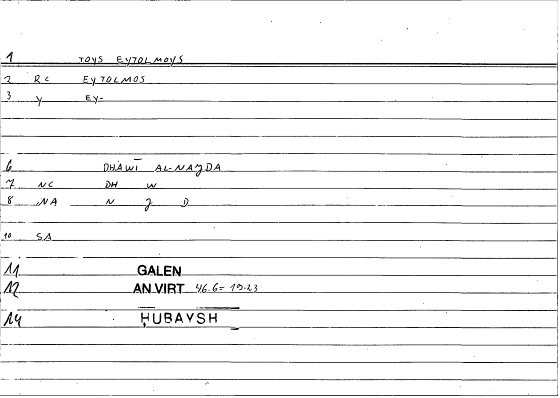 1 TOYS EYTOLMOYS
2 RC EYTOLMOS
3 Y EY-
6 DHAWĪ AL-NAJDA
7 NC DH W
8 NA N J D
10 SA
11 GALEN
12 AN VIRT 46.6= 19.23
14 ḤUBAYSH